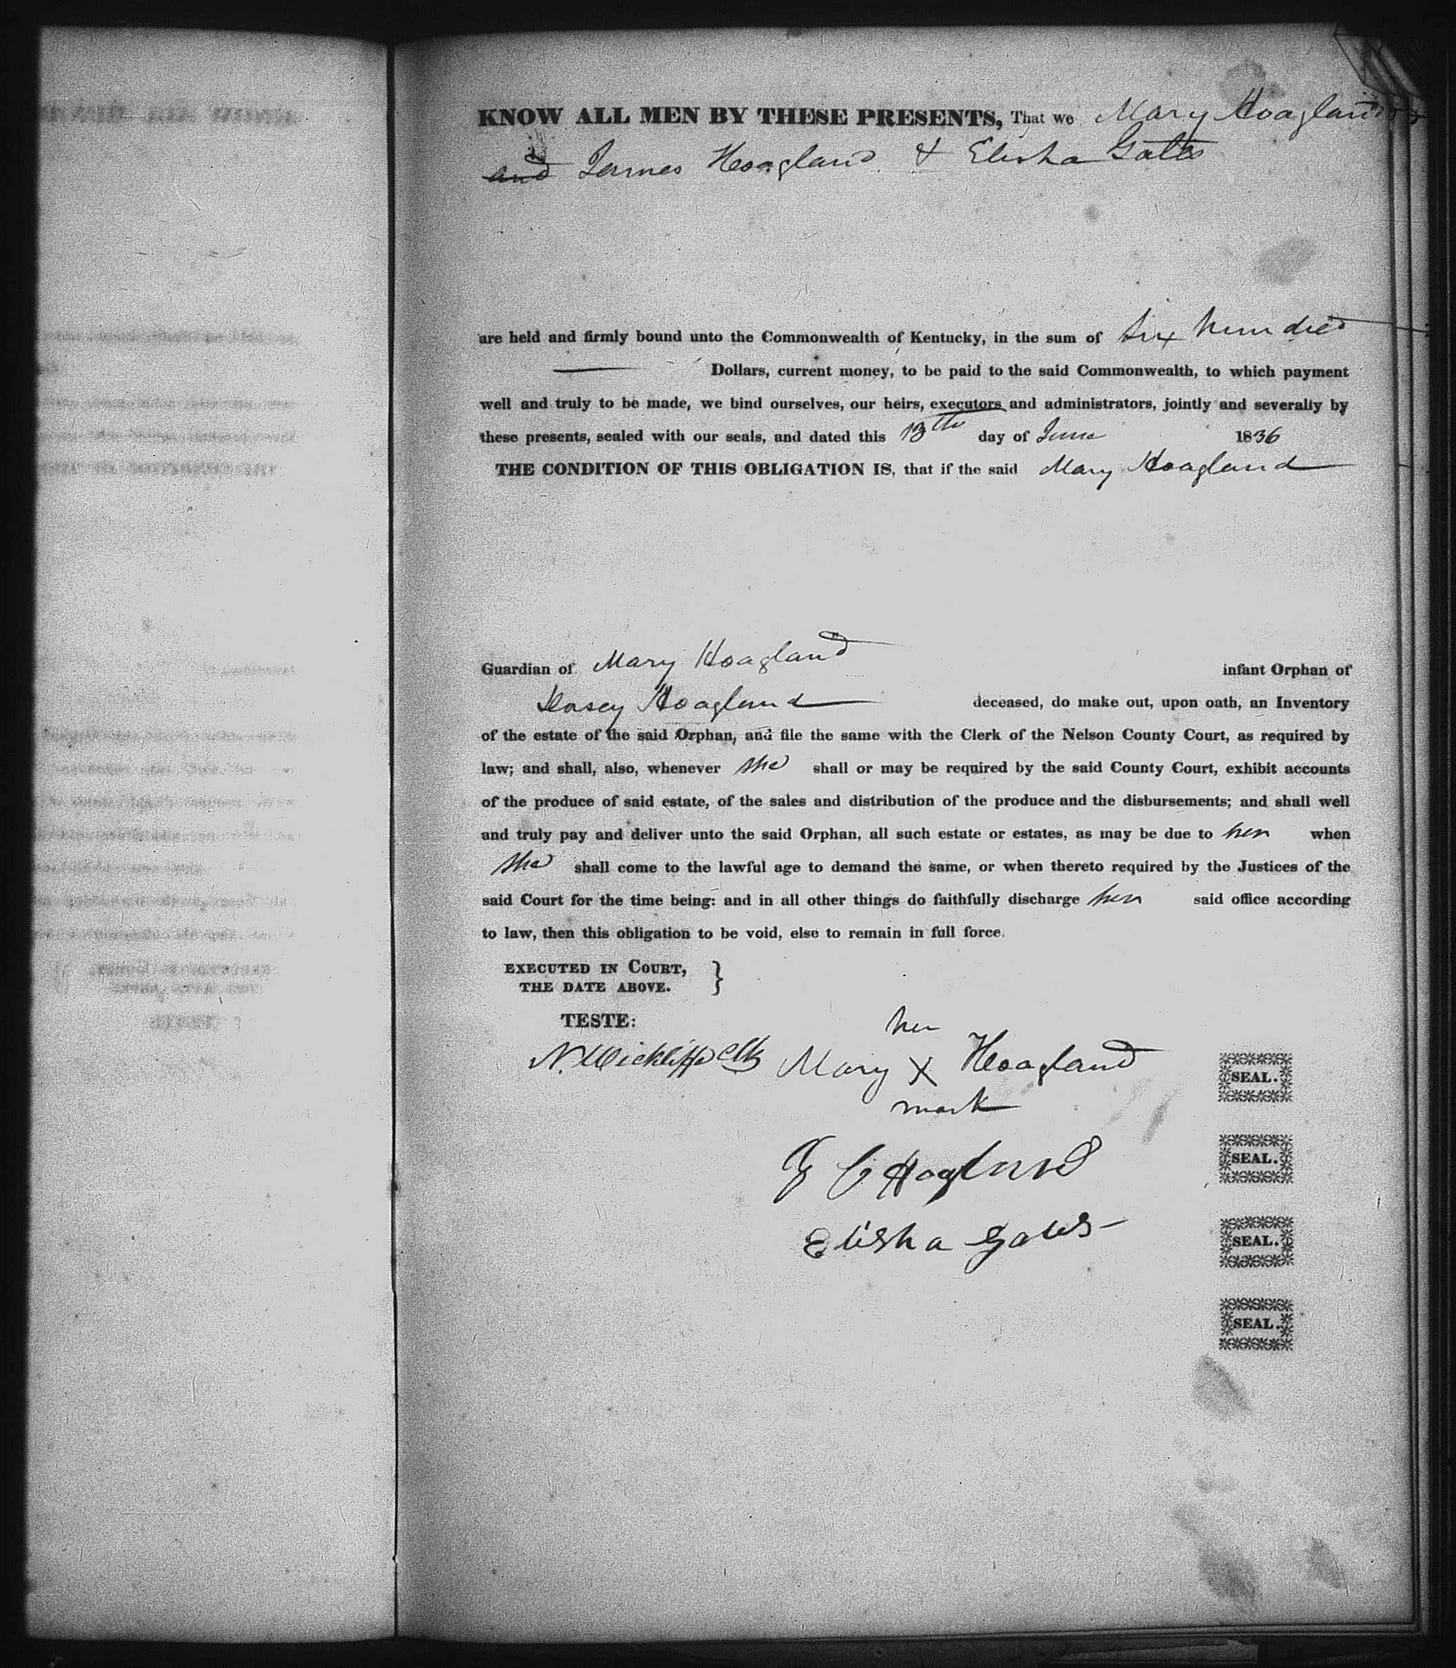 KNOW ALL MEN BY THESE PRESENTS, That we Mary Hoagland
and James Hoagland & Elisha Gates
are held and firmly bound unto the Commonwealth of Kentucky, in the sum of Six hundred
Dollars, current money, to be paid to the said Commonwealth, to which payment
well and truly to be made, we bind ourselves, our heirs, executors and administrators, jointly and severally by
these presents, sealed with our seals, and dated this 13th day of June 1836
THE CONDITION OF THIS OBLIGATION IS, that if the said Mary Hoagland
Guardian of Mary Hoagland infant Orphan of
Hoagland deceased, do make out, upon oath, an Inventory
of the estate of the said Orphan, and file the same with the Clerk of the Nelson County Court, as required by
law; and shall, also, whenever she shall or may be required by the said County Court, exhibit accounts
of the produce of said estate, of the sales and distribution of the produce and the disbursements; and shall well
and truly pay and deliver unto the said Orphan, all such estate or estates, as may be due to her when
she shall come to the lawful age to demand the same, or when thereto required by the Justices of the
said Court for the time being: and in all other things do faithfully discharge her said office according
to law, then this obligation to be void, else to remain in full force.
EXECUTED IN COURT, }
THE DATE ABOVE.
TESTE:
her
N. Wickliffe Clk Mary X Hoagland SEAL.
mark
C Hoagland SEAL.
Elisha Gates SEAL.
SEAL.